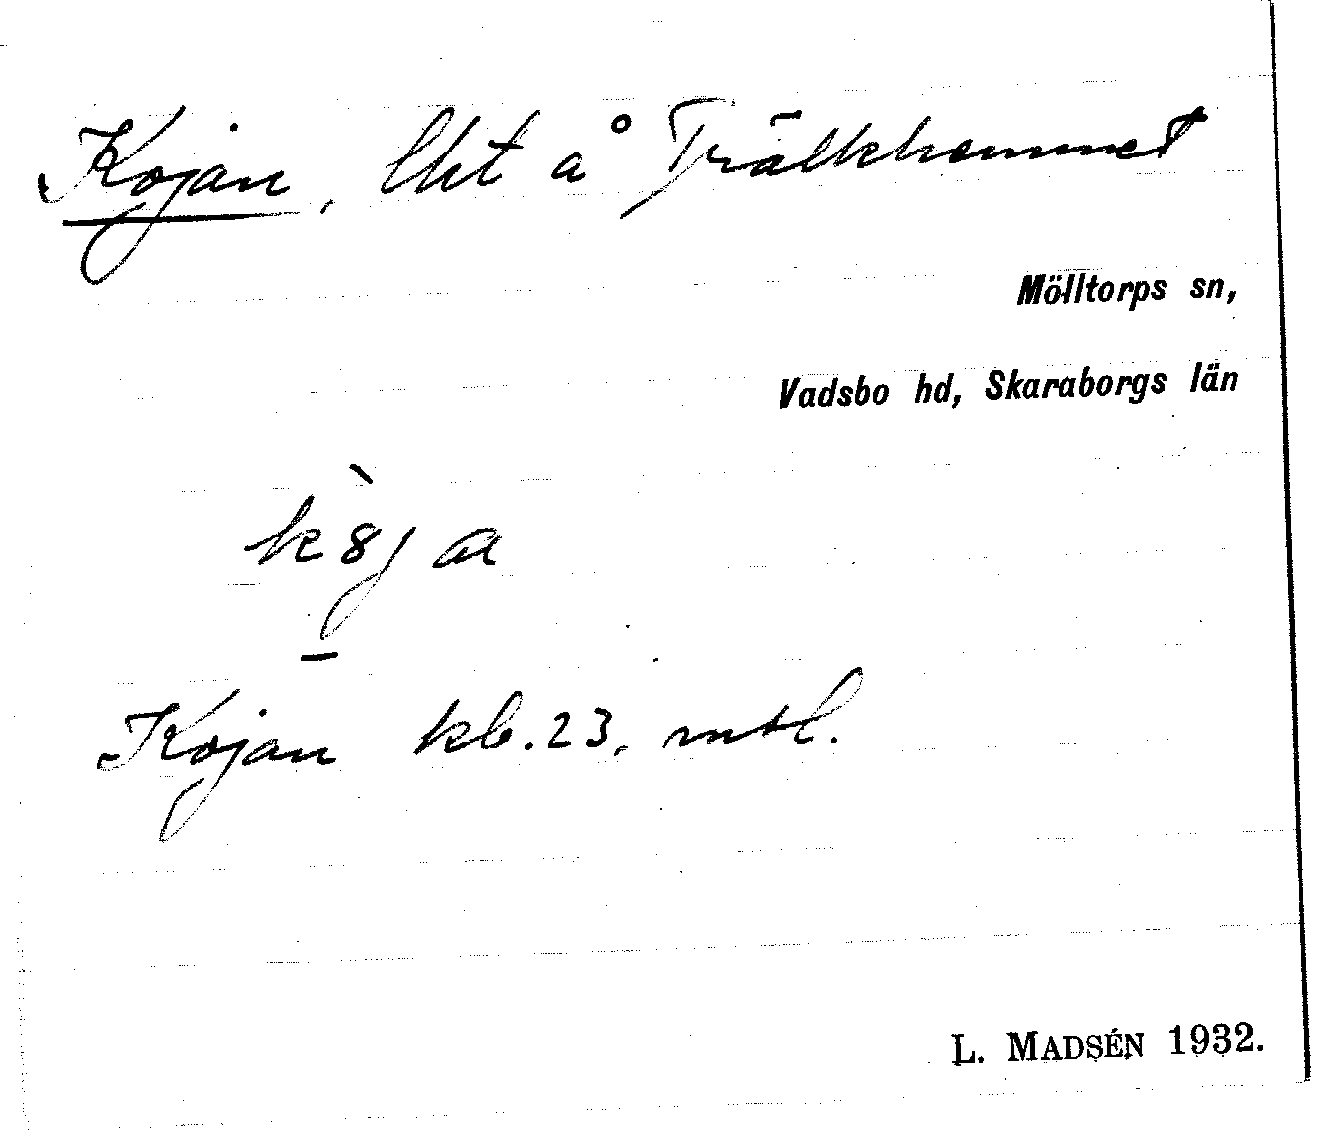 Kojan, lht å Trälkhemmet
Mölltorps sn,
Vadsbo hd, Skaraborgs län
Kojan kb. 23, mtl.
L. MADSÉN 1932.